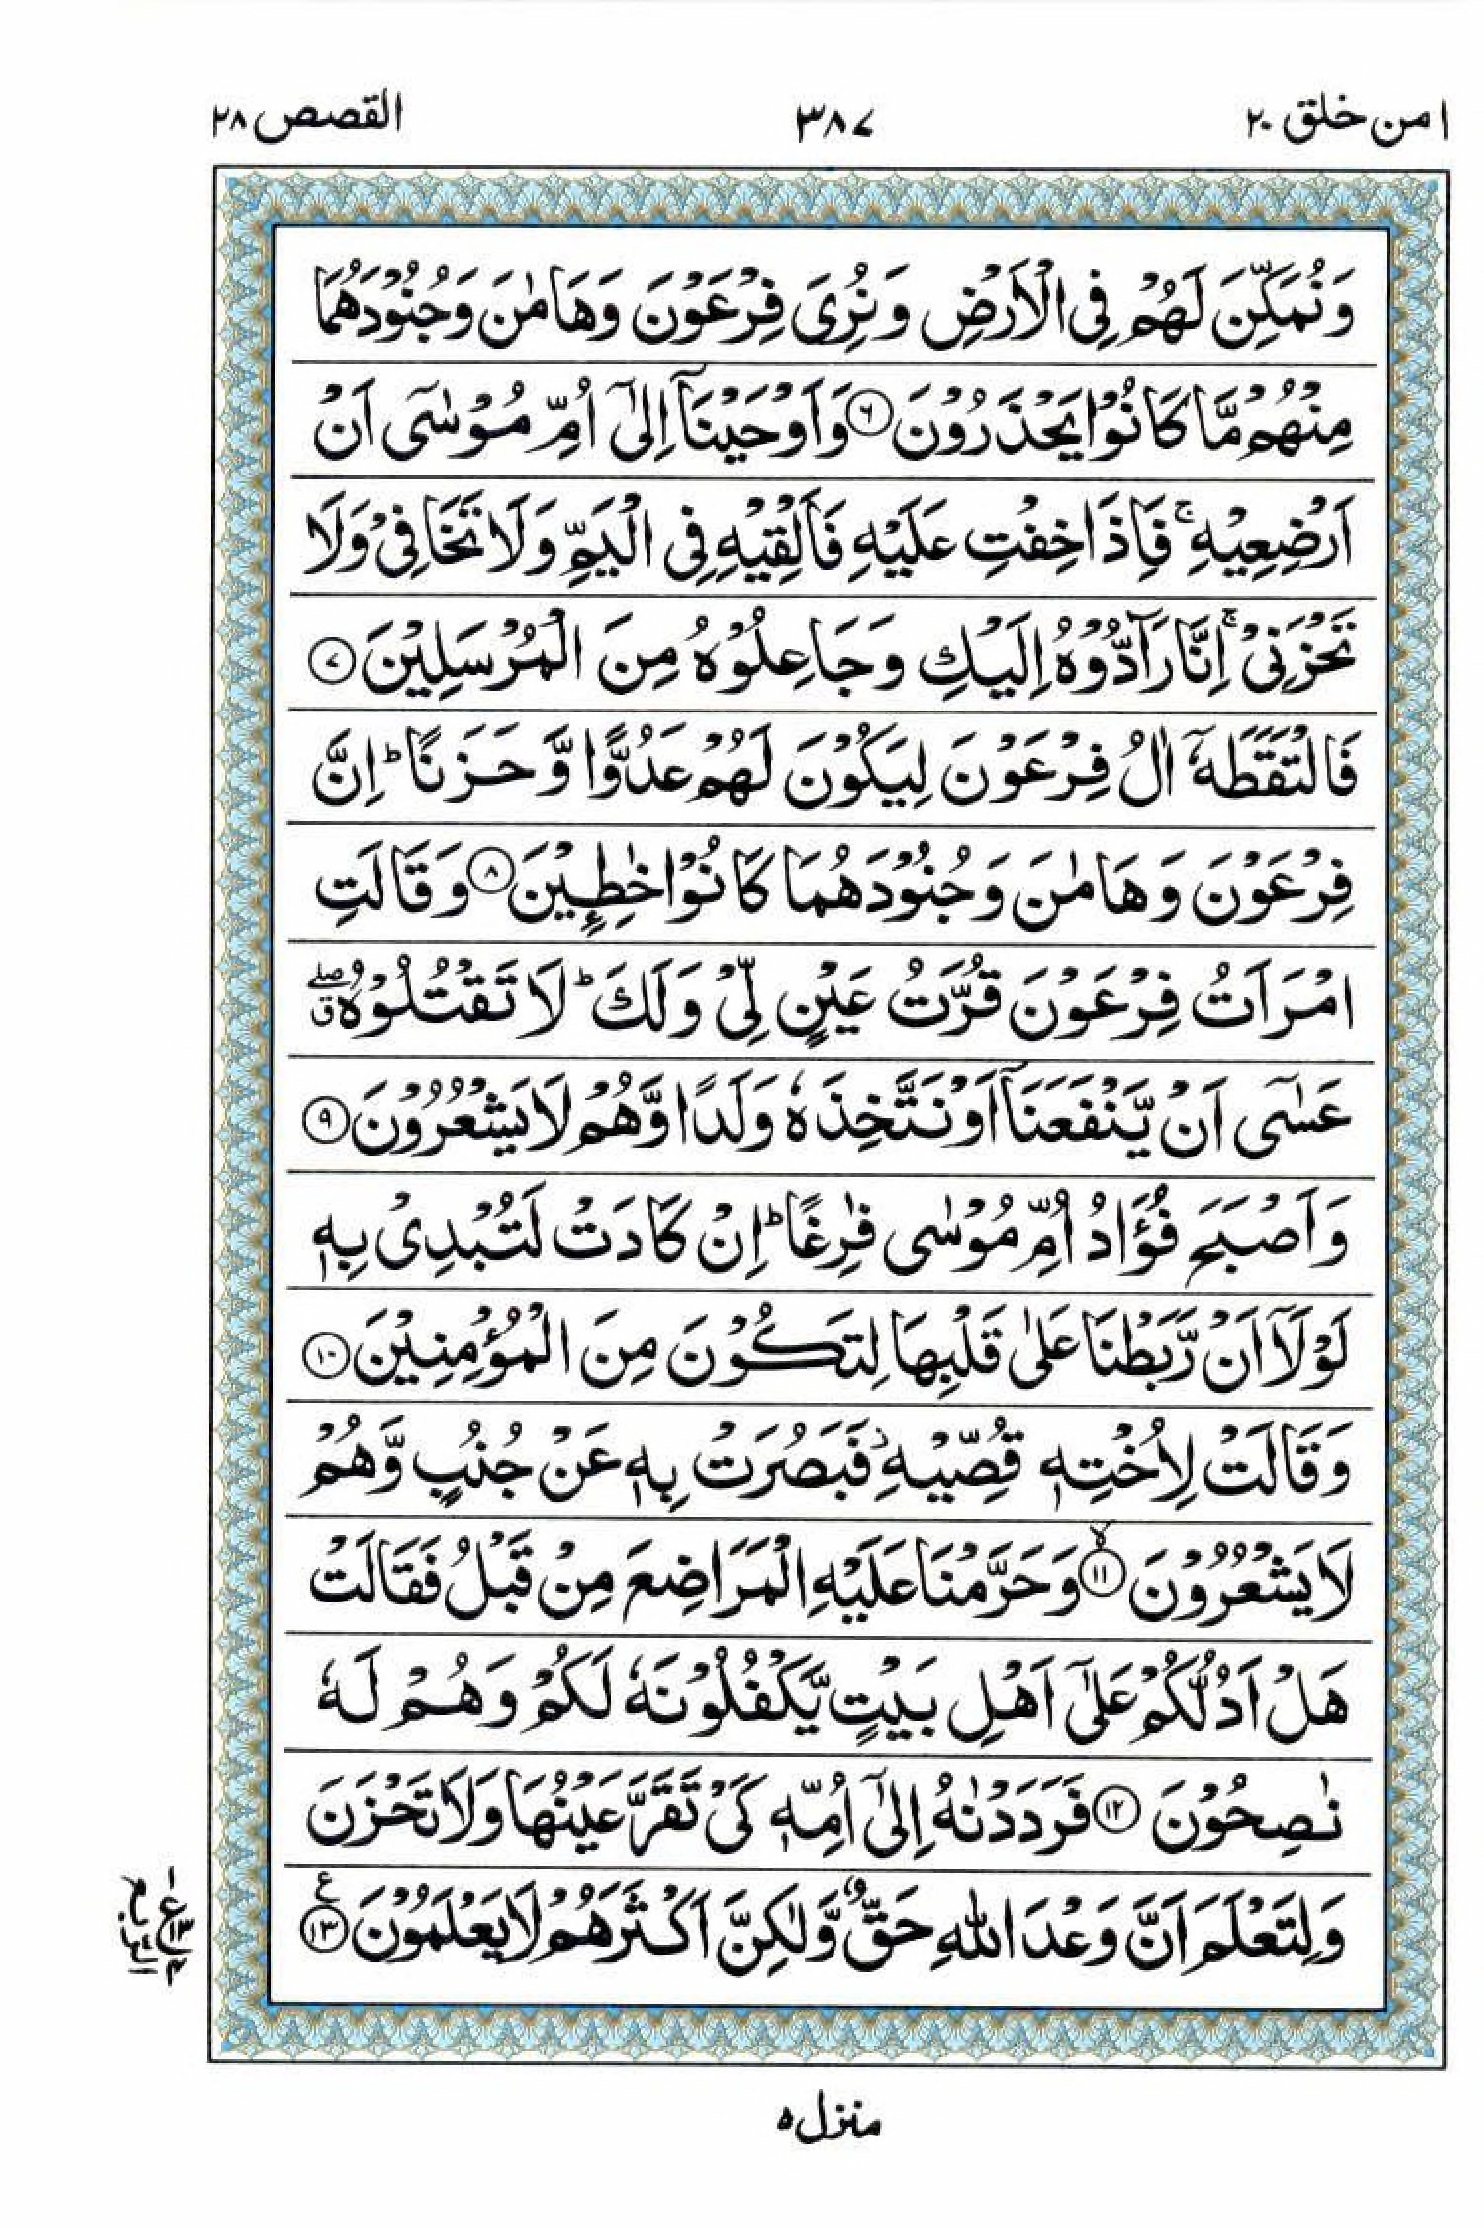 امن خلق ٢٠
٣٨٧
القصص ٢٨
وَنُمَكِّنَ لَهُمْ فِی الْاَرْضِ وَنُرِیَ فِرْعَوْنَ وَهَامٰنَ وَجُنُوْدَهُمَا
مِنْهُمْ مَّا كَانُوْا یَحْذَرُوْنَ ٦ وَاَوْحَیْنَاۤ اِلٰۤی اُمِّ مُوْسٰۤی اَنْ
اَرْضِعِیْهِ ۚ فَاِذَا خِفْتِ عَلَیْهِ فَاَلْقِیْهِ فِی الْیَمِّ وَلَا تَخَافِیْ وَلَا
تَحْزَنِیْ ۚ اِنَّا رَآدُّوْهُ اِلَیْكِ وَجَاعِلُوْهُ مِنَ الْمُرْسَلِیْنَ ٧
فَالْتَقَطَهٗۤ اٰلُ فِرْعَوْنَ لِیَكُوْنَ لَهُمْ عَدُوًّا وَّحَزَنًا ؕ اِنَّ
فِرْعَوْنَ وَهَامٰنَ وَجُنُوْدَهُمَا كَانُوْا خٰطِـِٕیْنَ ٨ وَقَالَتِ
امْرَاَتُ فِرْعَوْنَ قُرَّتُ عَیْنٍ لِّیْ وَلَكَ ؕ لَا تَقْتُلُوْهُ ۖق
عَسٰۤی اَنْ یَّنْفَعَنَاۤ اَوْ نَتَّخِذَهٗ وَلَدًا وَّهُمْ لَا یَشْعُرُوْنَ ٩
وَاَصْبَحَ فُؤَادُ اُمِّ مُوْسٰی فٰرِغًا ؕ اِنْ كَادَتْ لَتُبْدِیْ بِهٖ
لَوْلَاۤ اَنْ رَّبَطْنَا عَلٰی قَلْبِهَا لِتَكُوْنَ مِنَ الْمُؤْمِنِیْنَ ١٠
وَقَالَتْ لِاُخْتِهٖ قُصِّیْهِ ؗ فَبَصُرَتْ بِهٖ عَنْ جُنُبٍ وَّهُمْ
لَا یَشْعُرُوْنَ ۙ ١١ وَحَرَّمْنَا عَلَیْهِ الْمَرَاضِعَ مِنْ قَبْلُ فَقَالَتْ
هَلْ اَدُلُّكُمْ عَلٰۤی اَهْلِ بَیْتٍ یَّكْفُلُوْنَهٗ لَكُمْ وَهُمْ لَهٗ
نٰصِحُوْنَ ١٢ فَرَدَدْنٰهُ اِلٰۤی اُمِّهٖ كَیْ تَقَرَّ عَیْنُهَا وَلَا تَحْزَنَ
وَلِتَعْلَمَ اَنَّ وَعْدَ اللّٰهِ حَقٌّ وَّلٰكِنَّ اَكْثَرَهُمْ لَا یَعْلَمُوْنَ ١٣ ع
منزل ٥